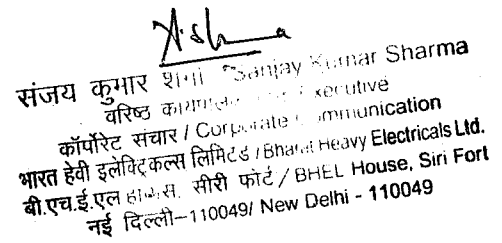 संजय कुमार शर्मा Sanjay Kumar Sharma
वरिष्ठ Executive
कॉर्पोरेट संचार / Corporate Communication
भारत हेवी इलेक्ट्रिकल्स लिमिटेड / Bharat Heavy Electricals Ltd.
बी.एच.ई.एल हाउस, सीरी फोर्ट / BHEL House, Siri Fort
नई दिल्ली-110049/ New Delhi - 110049